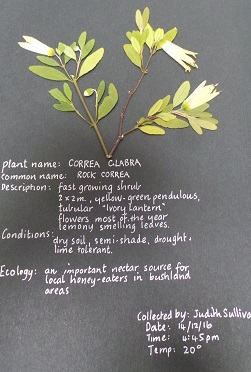 plant name: CORREA GLABRA
common name: ROCK CORREA
Description: fast growing shrub
2x2m, yellow-green pendulous,
tubular "Ivory lantern"
flowers most of the year
lemony smelling leaves.
Conditions: dry soil, semi-shade, drought,
lime tolerant.
Ecology: an important nectar source for
local honey-eaters in bushland
areas
Collected by: Judith Sulliva
Date: 14/12/16
Time: 4:45pm
Temp: 20°